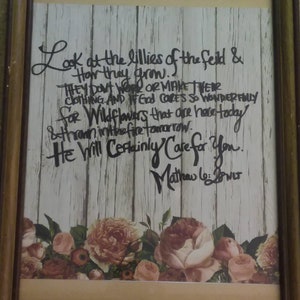 Look at the lillies of the feild &
How they grow.
THEY DON'T WORK OR MAKE THEIR
CLOTHING AND IF GOD CARES SO WONDERFULLY
for Wildflowers that are here today
& thrown in the fire tomorrow.
He Will Certainly Care for You.
Mathew 6: